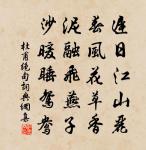 遲日江山麗
春風花草香
泥融飛燕子
沙暖睡鴛鴦
杜甫絕句詞典網集